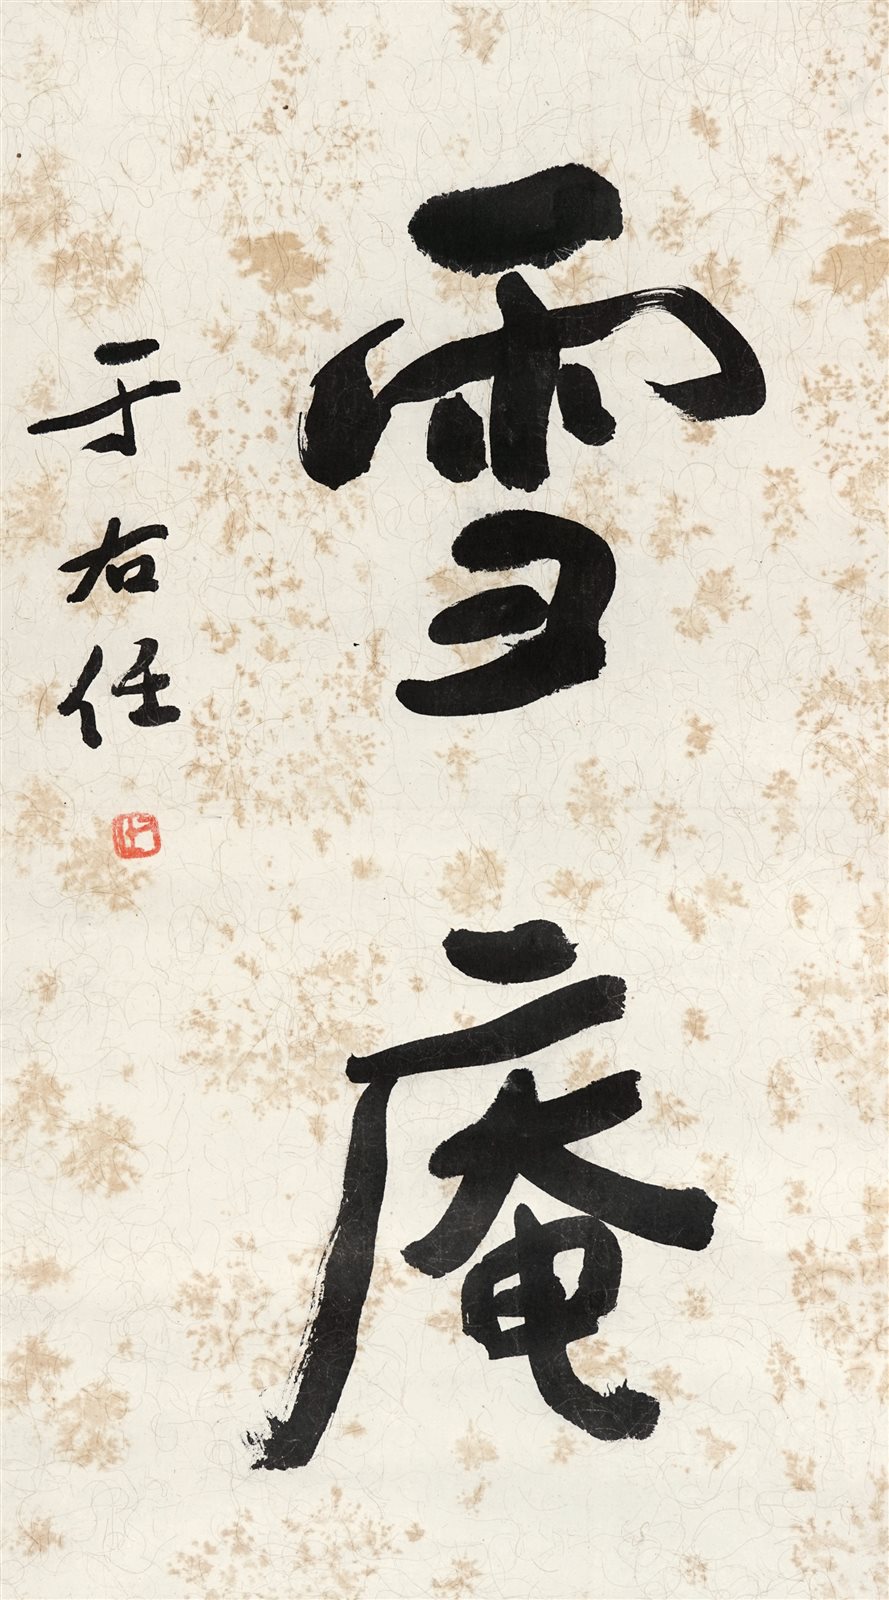 雪庵
于右任